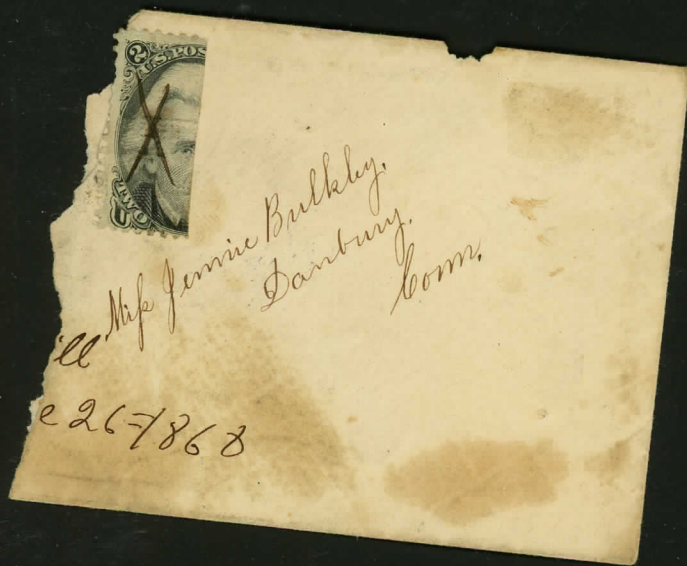 2
U.S. POS
U TWO
Miſs Jennie Bulkley,
Danbury,
Conn.
ll
e 26=1868